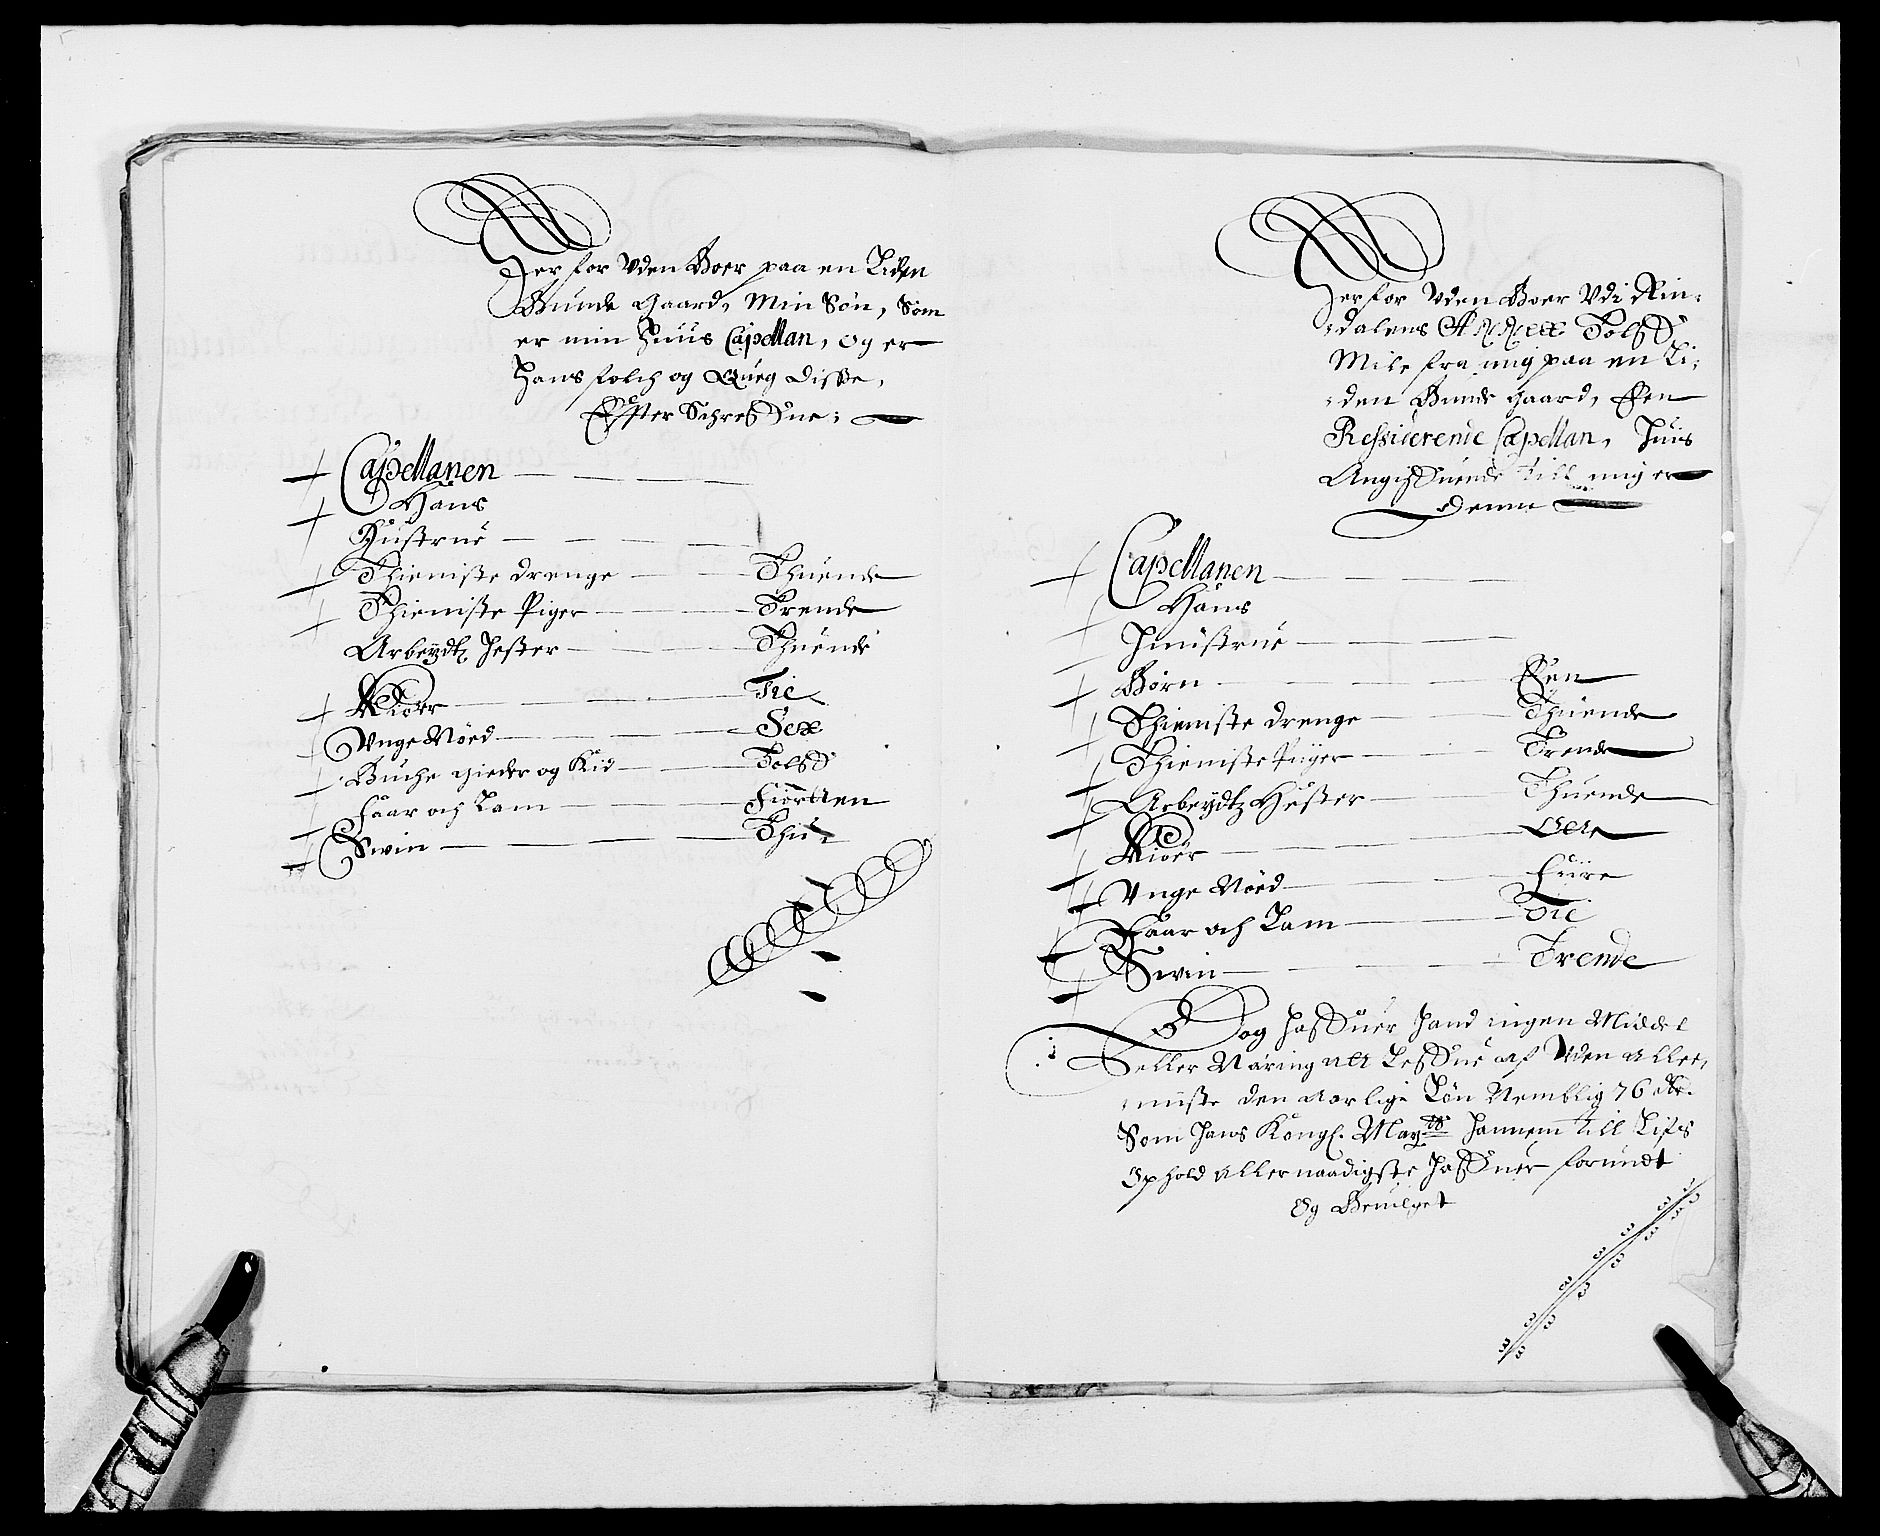 Her for Vden Boer paa en Liden
Bunde Gaard, Min Søn, Som
er min Huus Capellan, og er
Hans folch og Queg disse,
Effter Schreffne:
Capellanen
Hans
Hustrue
Thieniste drenge Thuende
Thieniste Piger Trende
Arbeydtz Hester Thuende
Kiör Tie
Vnge Nöed Sex
Buche gieder og Kid Tolff
Faar och Lam Fiortten
Swin Thu
Her for Vden Boer Vdi Rin:
:dalens Annex Tolff
Mile fra mig paa en Li:
:den Bunde Gaard, Een
Ressiderende Capellan, Huis
Angiffuende till mig er
denne
Capellanen
Hans
Huustrue
Börn Een
Thieniste drenge Thuende
Thieniste Piiger Trende
Arbeydtz Hester Thuende
Kiör
Vnge Nöed Fiire
Faar och Lam Tie
Swin Trende
Dog haffuer Hand ingen Middel
eller Näring att Leffue af Vden Aller,
:ministe den Aarlige Lön Nemblig 76 Rdr.
Som Hans Kongl. Maytts hannem till Lifs
Ophold allernaadigste haffuer forundt
Og Beuilget